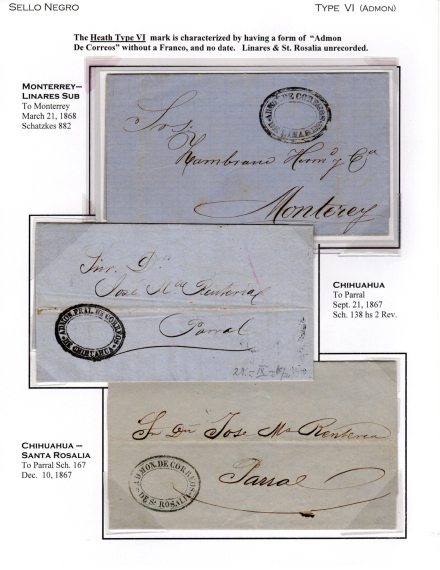 SELLO NEGRO
TYPE VI (ADMON)
The Heath Type VI mark is characterized by having a form of "Admon
De Correos" without a Franco, and no date. Linares & St. Rosalia unrecorded.
MONTERREY–
LINARES SUB
To Monterrey
March 21, 1868
Schatzkes 882
ADMON DE CORREOS
DE LINARES
Sres.
Zambrano Hermo y Ca
Monterey
CHIHUAHUA
To Parral
Sept. 21, 1867
Sch. 138 hs 2 Rev.
Sor. Dn
José Ma Renteria
Parral
ADMON PRAL DE CORREOS
CHIHUAHUA
21 - IX - 67
CHIHUAHUA –
SANTA ROSALIA
To Parral Sch. 167
Dec. 10, 1867
Sr Dn Jose Ma Renteria
Parral
ADMON. DE CORREOS
DE Sta ROSALIA